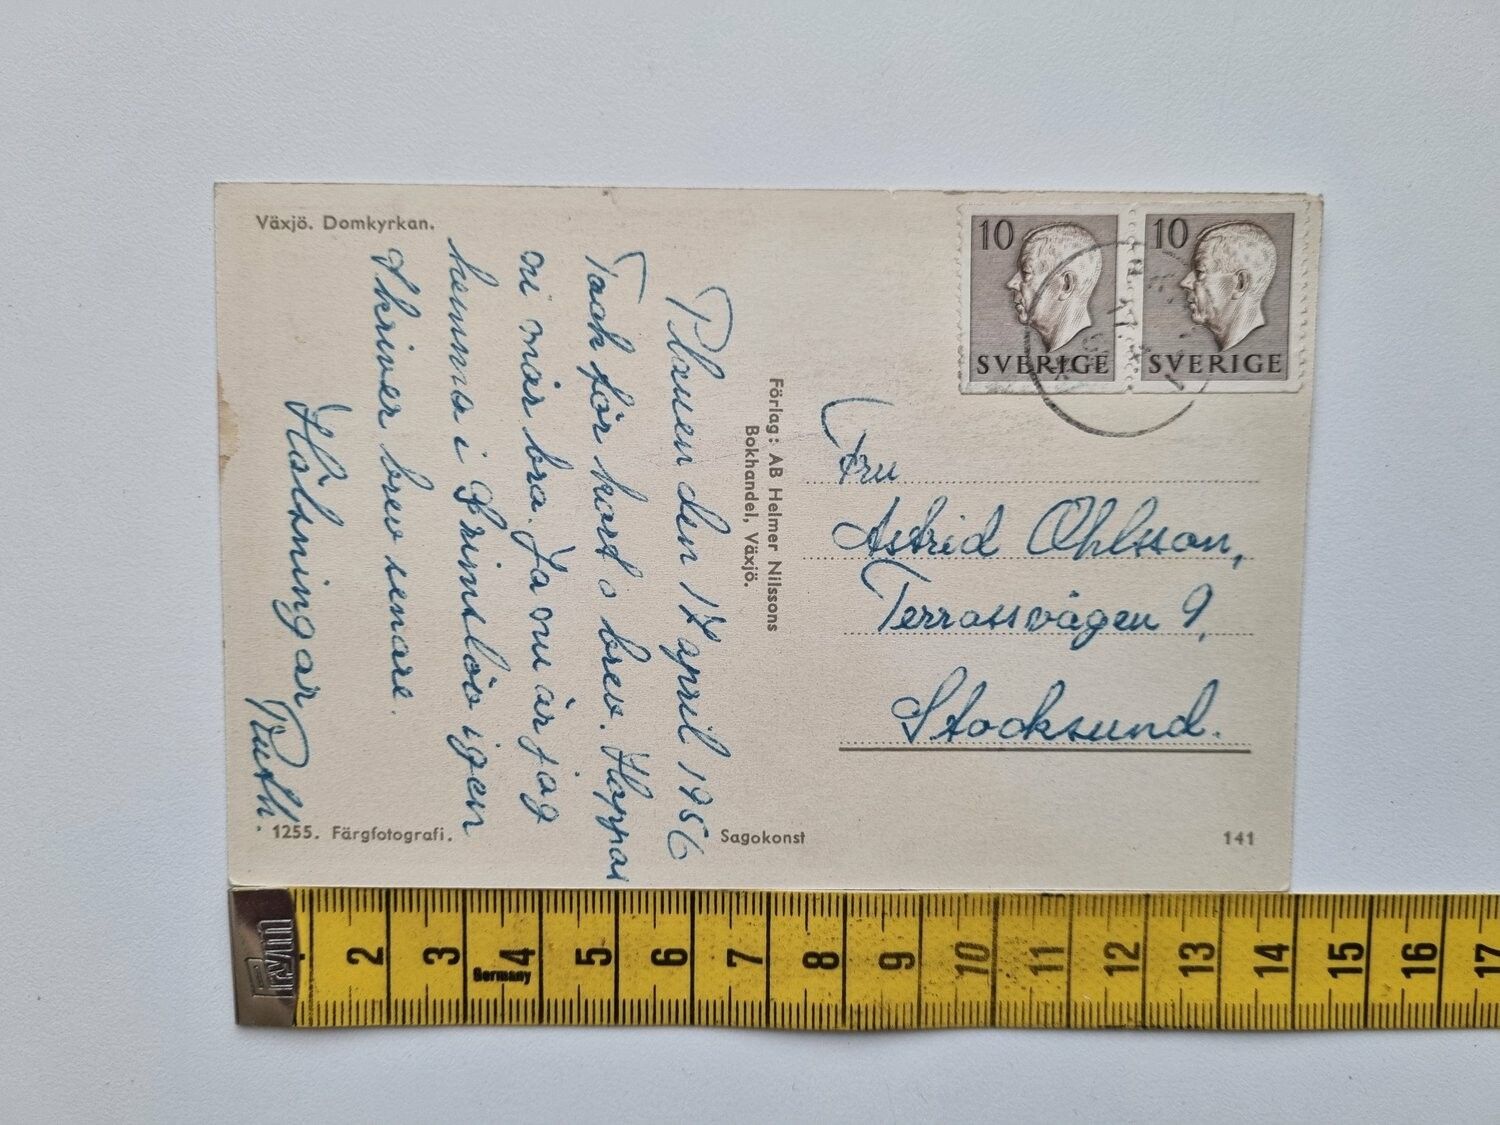 Växjö. Domkyrkan.
den 17 april 1956
Tack för kort o brev. Hoppas
ni mår bra. Ja nu är jag
hemma i igen
Skriver brev senare.
Hälsningar
Ruth.
1255. Färgfotografi.
Förlag: AB Helmer Nilssons
Bokhandel, Växjö.
Sagokonst
10
SVERIGE
10
SVERIGE
Fru
Astrid Ohlsson,
Terrassvägen 9,
Stocksund.
141
2 3 4 5 6 7 8 9 10 11 12 13 14 15 16 17
Germany